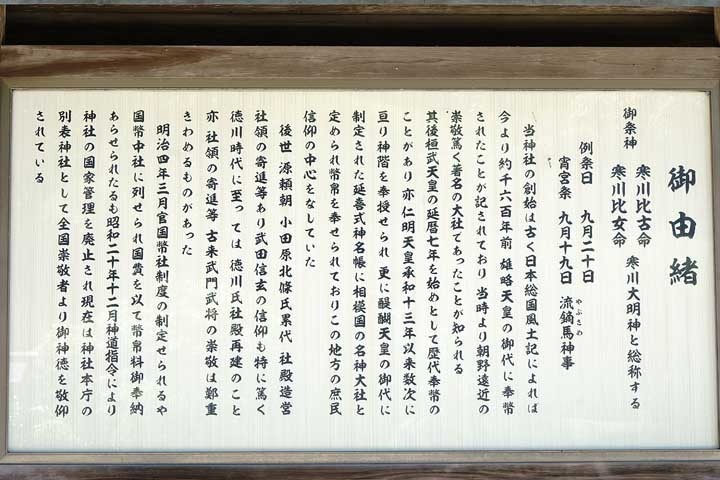 御由緒
御祭神
寒川比古命
寒川比女命
寒川大明神と総称する
例祭日 九月二十日
宵宮祭 九月十九日 流鏑馬神事
やぶさめ
当神社の創始は古く日本総国風土記によれば
今より約千六百年前 雄略天皇の御代に奉幣
されたことが記されており 当時より朝野遠近の
崇敬篤く著名の大社であったことが知られる
其後桓武天皇の延暦七年を始めとして歴代奉幣の
ことがあり 亦仁明天皇承和十三年以来数次に
亘り神階を奉授せられ 更に醍醐天皇の御代に
制定された延喜式神名帳に相模国の名神大社と
定められ幣帛を奉せられておりこの地方の庶民
信仰の中心をなしていた
後世 源頼朝 小田原北條氏累代 社殿造営
社領の寄進等あり武田信玄の信仰も特に篤く
徳川時代に至っては 徳川氏社殿再建のこと
亦 社領の寄進等 古来武門武将の崇敬は鄭重
きわめるものがあった
明治四年三月官国幣社制度の制定せられるや
国幣中社に列せられ国費を以て幣帛料御奉納
あらせられたるも昭和二十年十二月神道指令により
神社の国家管理を廃止され現在は神社本庁の
別表神社として全国崇敬者より御神徳を敬仰
されている